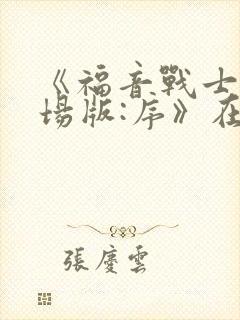 《福音戰士
場版:序》在
張慶雲